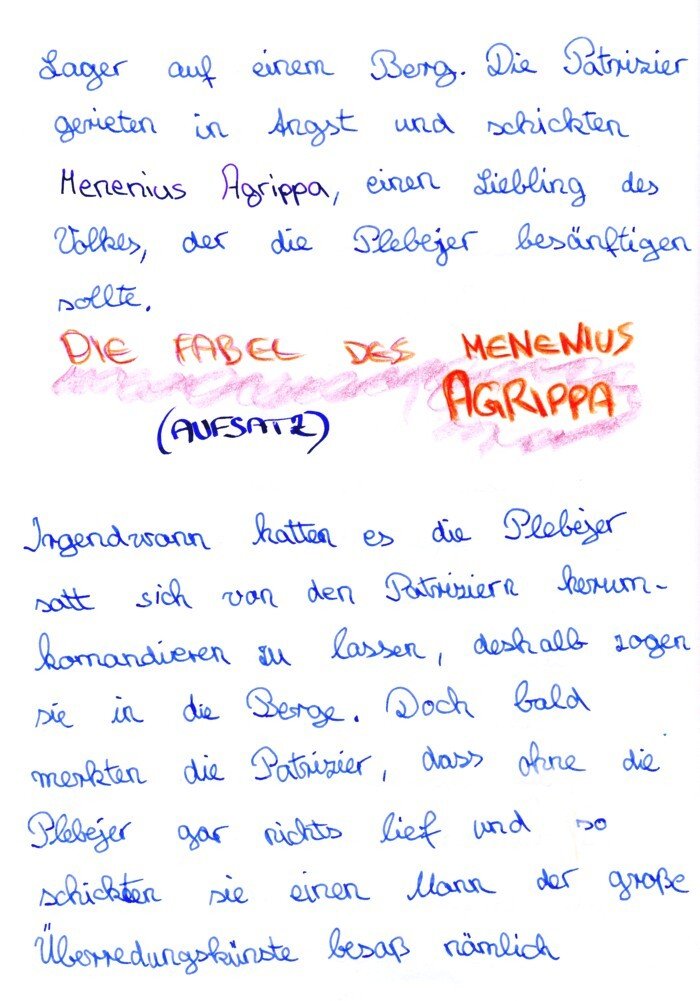 Lager auf einem Berg. Die Patrizier
gerieten in Angst und schickten
Menenius Agrippa, einen Liebling des
Volkes, der die Plebejer besänftigen
sollte.
DIE FABEL DES MENENIUS
AGRIPPA
(AUFSATZ)
Irgendwann hatten es die Plebejer
satt sich von den Patriziern herum-
komandieren zu lassen, deshalb zogen
sie in die Berge. Doch bald
merkten die Patrizier, dass ohne die
Plebejer gar nichts lief und so
schickten sie einen Mann der große
Überredungskünste besaß nämlich